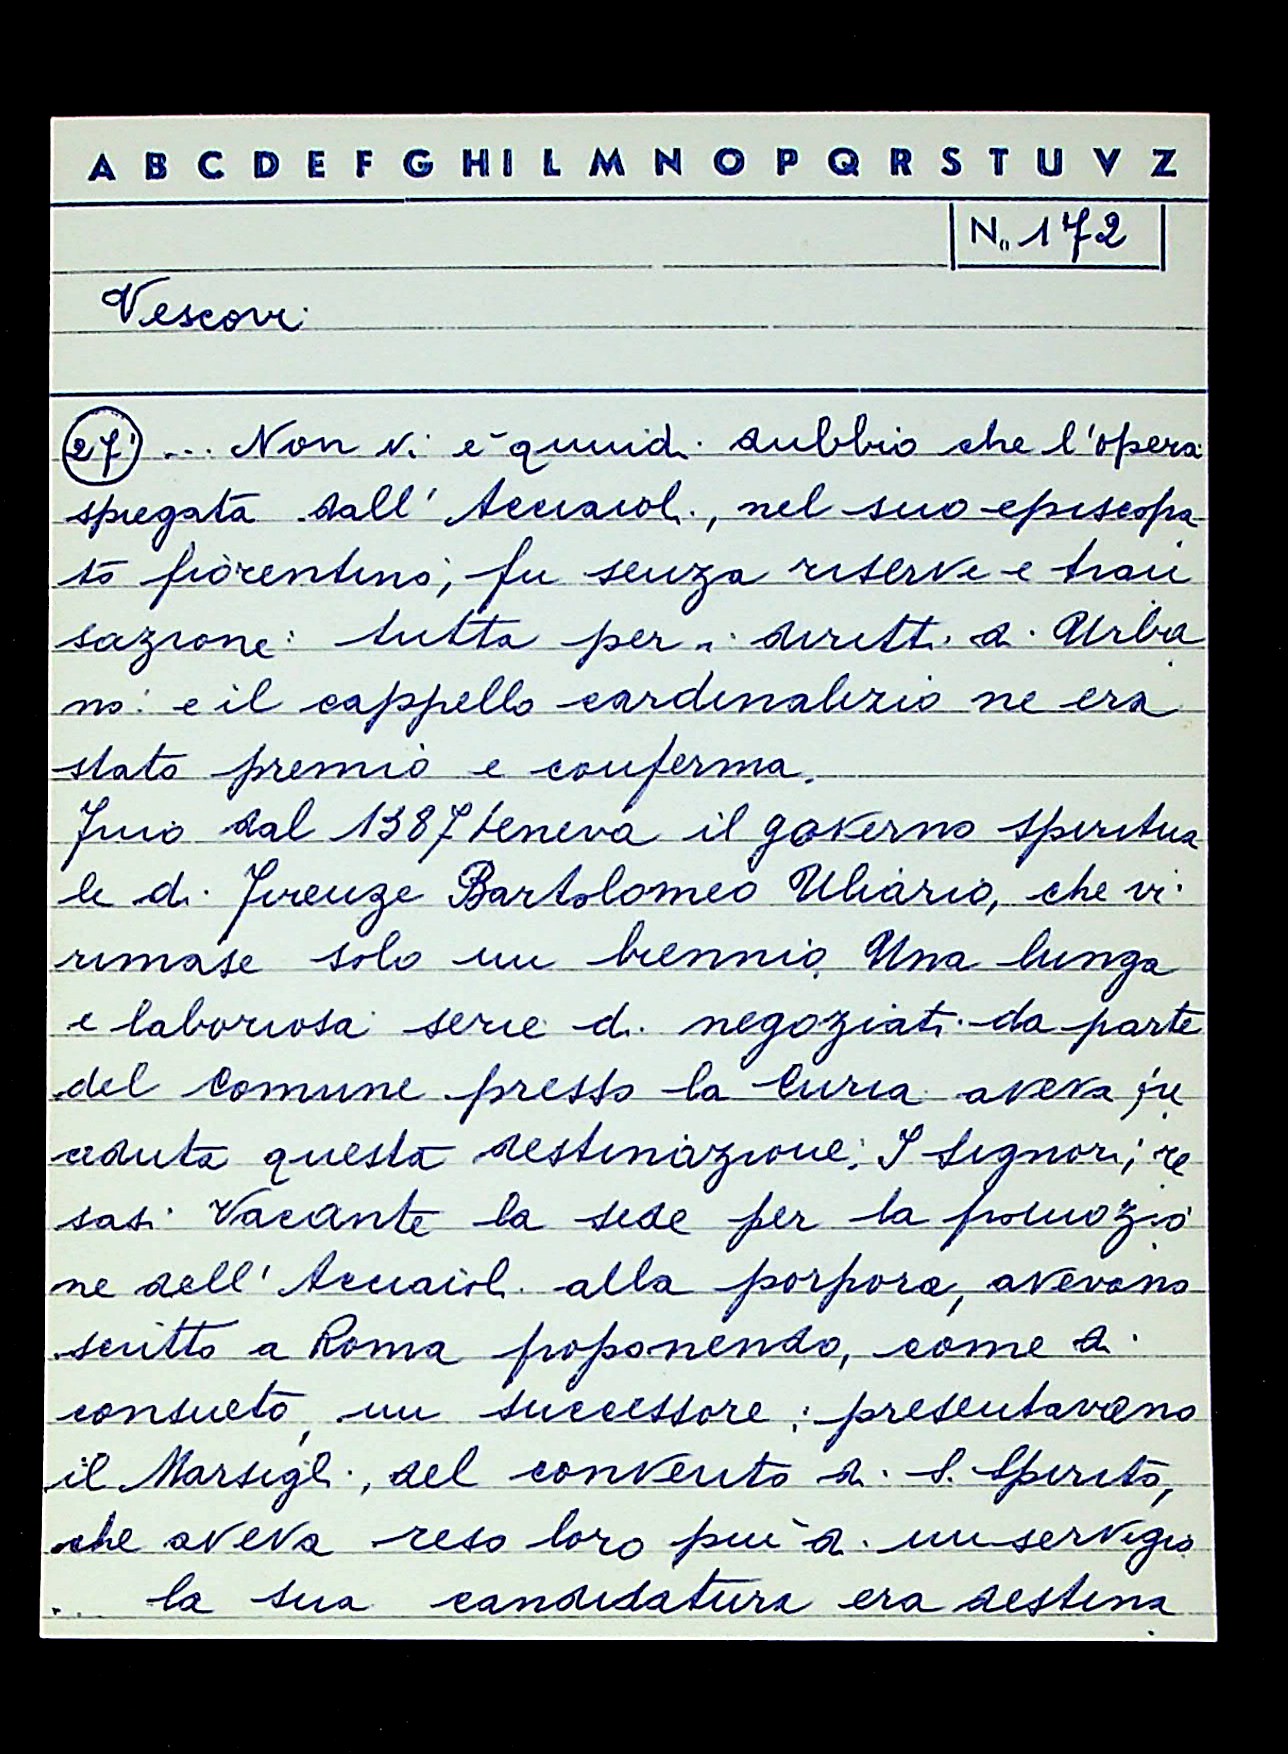 A B C D E F G H I L M N O P Q R S T U V Z
N. 172
Vescovi
27) ... Non vi è quindi dubbio che l'opera
spiegata dall' Acciaioli, nel suo episcopa
to fiorentino, fu senza riserve e tran
sazione: tutta per i diritti di Urba
no: e il cappello cardinalizio ne era
stato premio e conferma.
Fino dal 1387 teneva il governo spiritua
le di Firenze Bartolomeo Uliario, che vi
rimase solo un biennio. Una lunga
e laboriosa serie di negoziati da parte
del Comune presso la Curia aveva pre
ceduta questa destinazione. I Signori, re
sasi vacante la sede per la promozio
ne dell' Acciaioli alla porpora, avevano
scritto a Roma proponendo, come di
consueto, un successore: presentavano
il Marsigli, del convento di S. Spirito,
che aveva reso loro più di un servigio
... la sua candidatura era destina